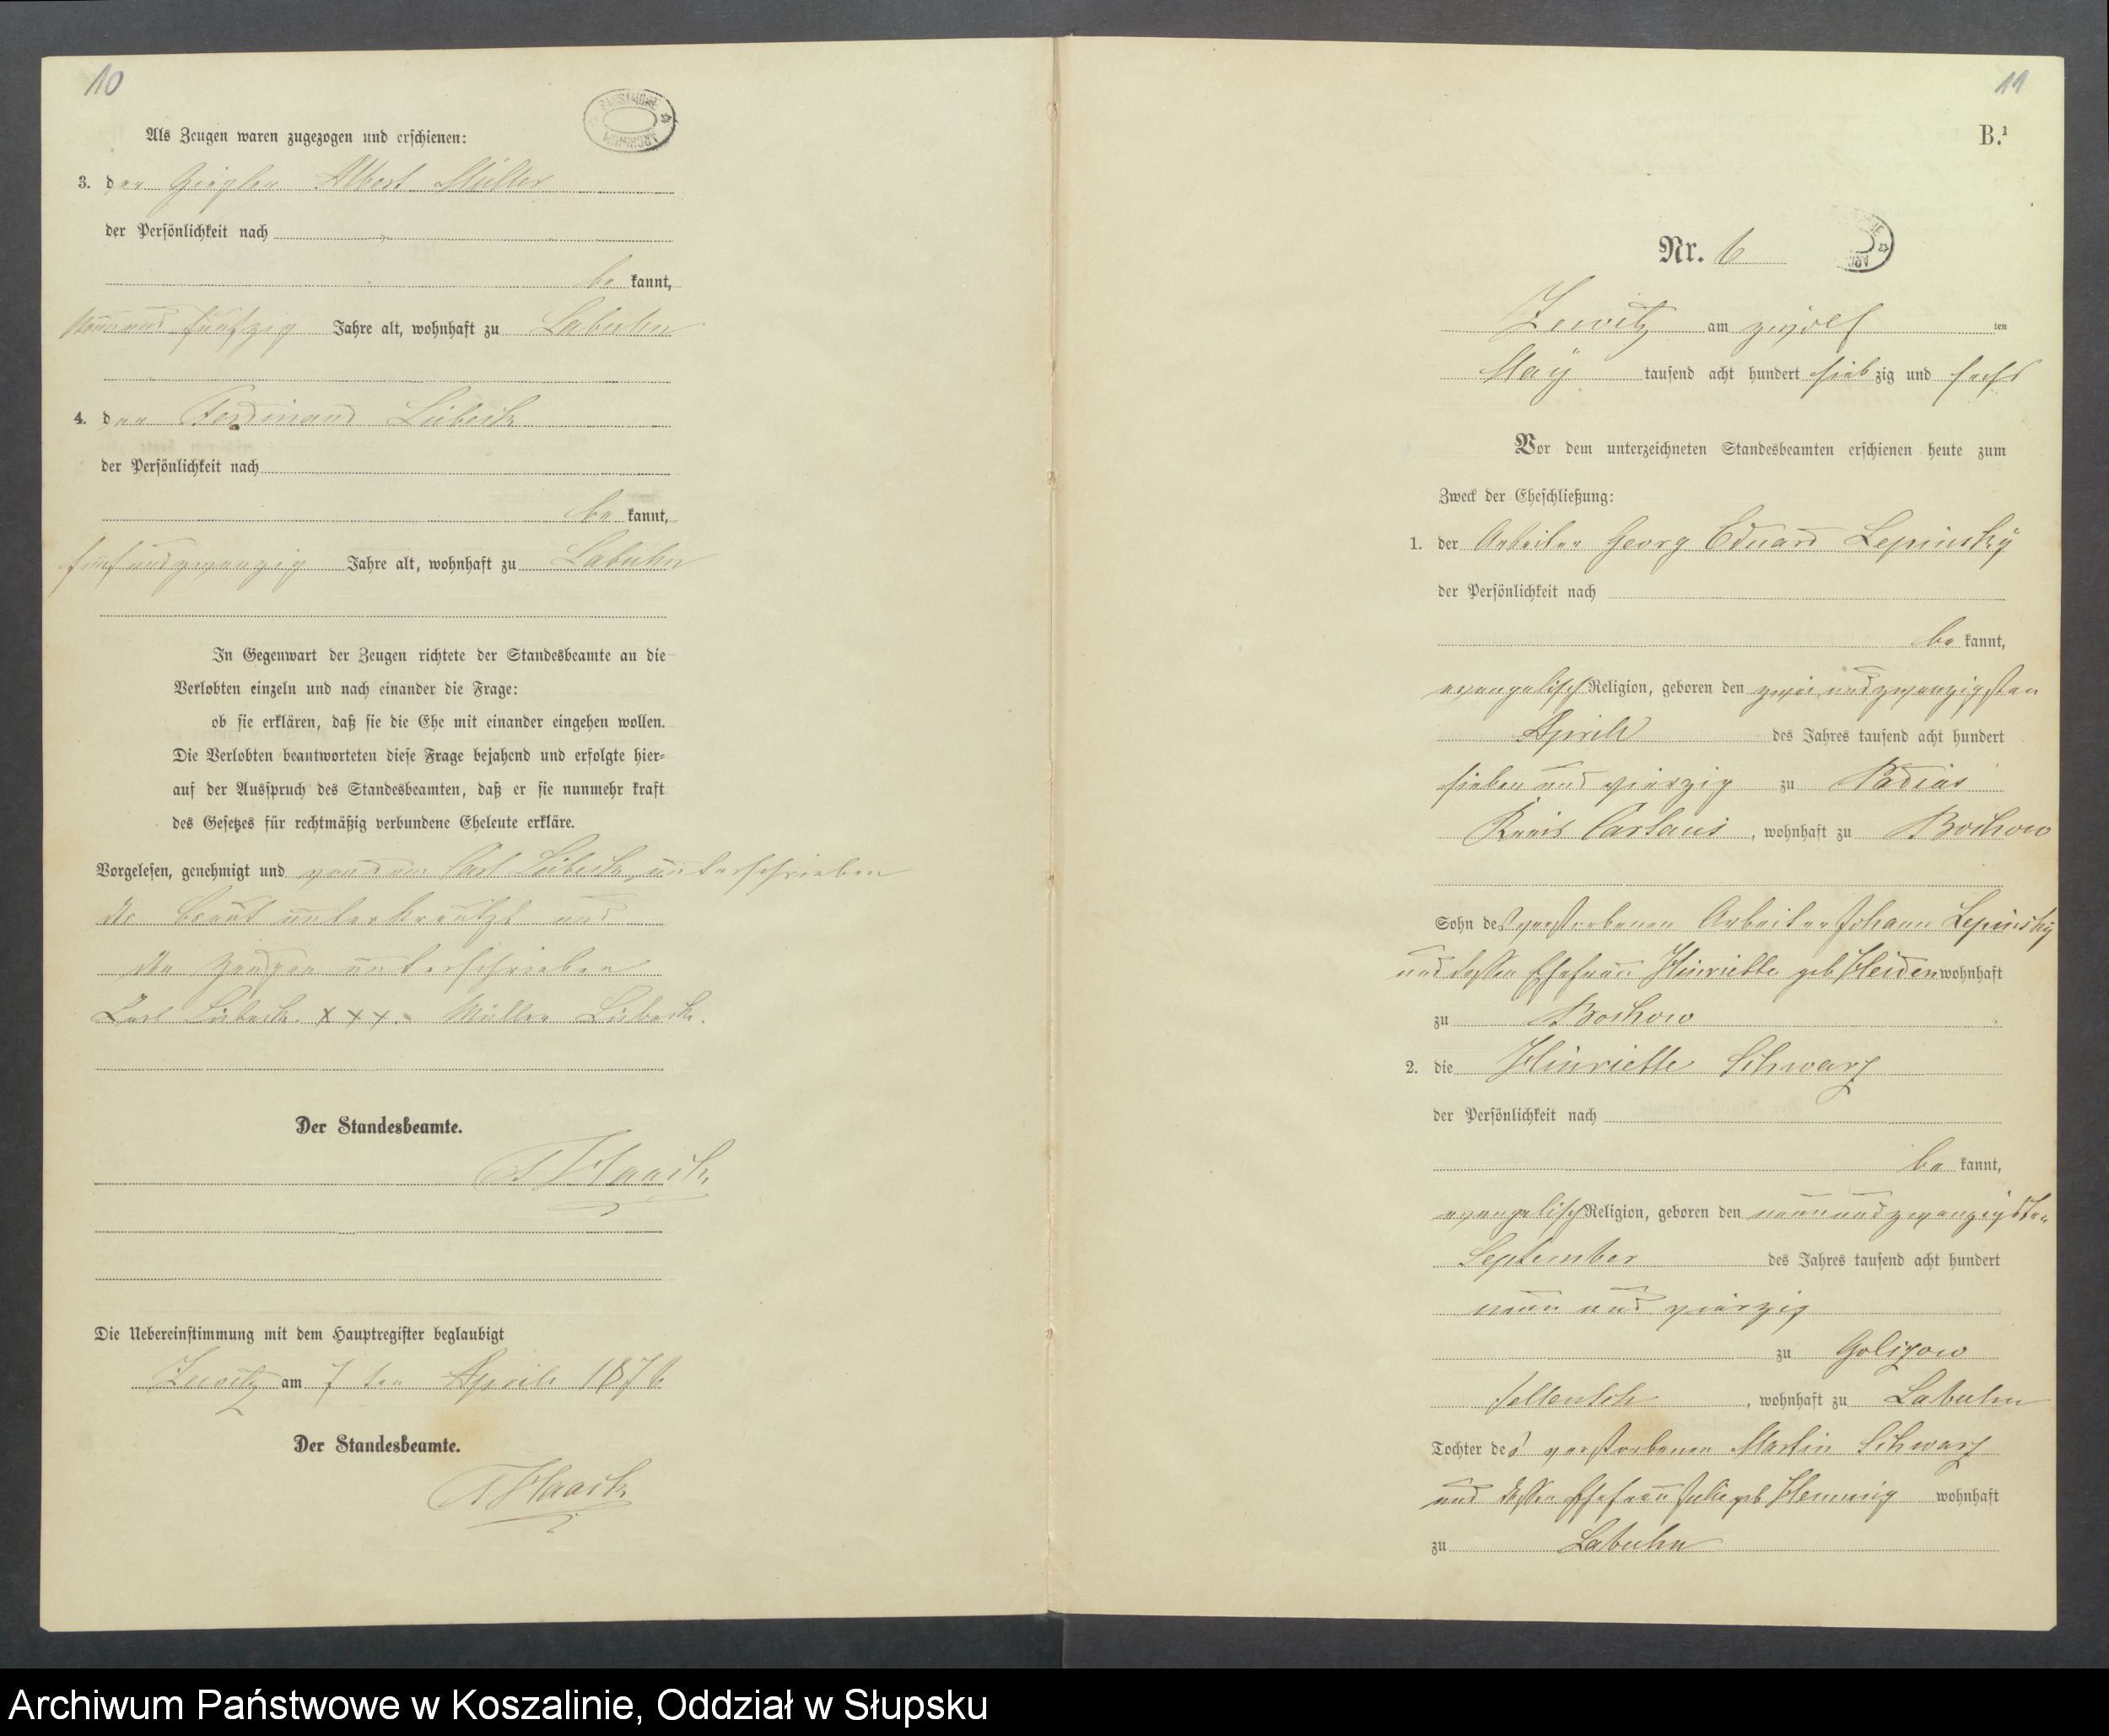 10
PAŃSTWOWE ARCHIWUM
Als Zeugen waren zugezogen und erschienen:
3. der Ziegler Albert Müller
der Persönlichkeit nach
be kannt,
neun und fünfzig Jahre alt, wohnhaft zu Labuhn
4. der Ferdinand Lübeck
der Persönlichkeit nach
be kannt,
fünf und zwanzig Jahre alt, wohnhaft zu Labuhn
In Gegenwart der Zeugen richtete der Standesbeamte an die
Verlobten einzeln und nach einander die Frage:
ob sie erklären, daß sie die Ehe mit einander eingehen wollen.
Die Verlobten beantworteten diese Frage bejahend und erfolgte hier-
auf der Ausspruch des Standesbeamten, daß er sie nunmehr kraft
des Gesetzes für rechtmäßig verbundene Eheleute erkläre.
Vorgelesen, genehmigt und von dem Carl Lübeck unterschrieben
die Braut unterkreutzt und
die Zeugen unterschrieben
Carl Lübeck. x x x. Müller Lübeck.
Der Standesbeamte.
Haack
Die Uebereinstimmung mit dem Hauptregister beglaubigt
Zewitz am 7 ten April 1876
Der Standesbeamte.
Haack
11
B.¹
Nr. 6
Zewitz am zwölf ten
May tausend acht hundert sieb zig und sechs
Vor dem unterzeichneten Standesbeamten erschienen heute zum
Zweck der Eheschließung:
1. der Arbeiter Georg Eduard Lepinsky
der Persönlichkeit nach
be kannt,
evangelisch Religion, geboren den zwei und zwanzigsten
April des Jahres tausend acht hundert
sieben und vierzig zu
Kreis Cartaus, wohnhaft zu Bochow
Sohn des verstorbenen Arbeiter Johann Lepinsky
und dessen Ehefrau Hinriette geb Heiden wohnhaft
zu Bochow
2. die Hinriette Schwarz
der Persönlichkeit nach
be kannt,
evangelisch Religion, geboren den neun und zwanzigsten
September des Jahres tausend acht hundert
neun und vierzig
zu Golizow
, wohnhaft zu Labuhn
Tochter des verstorbenen Martin Schwarz
und dessen Ehefrau Julie geb Henning wohnhaft
zu Labuhn
Archiwum Państwowe w Koszalinie, Oddział w Słupsku